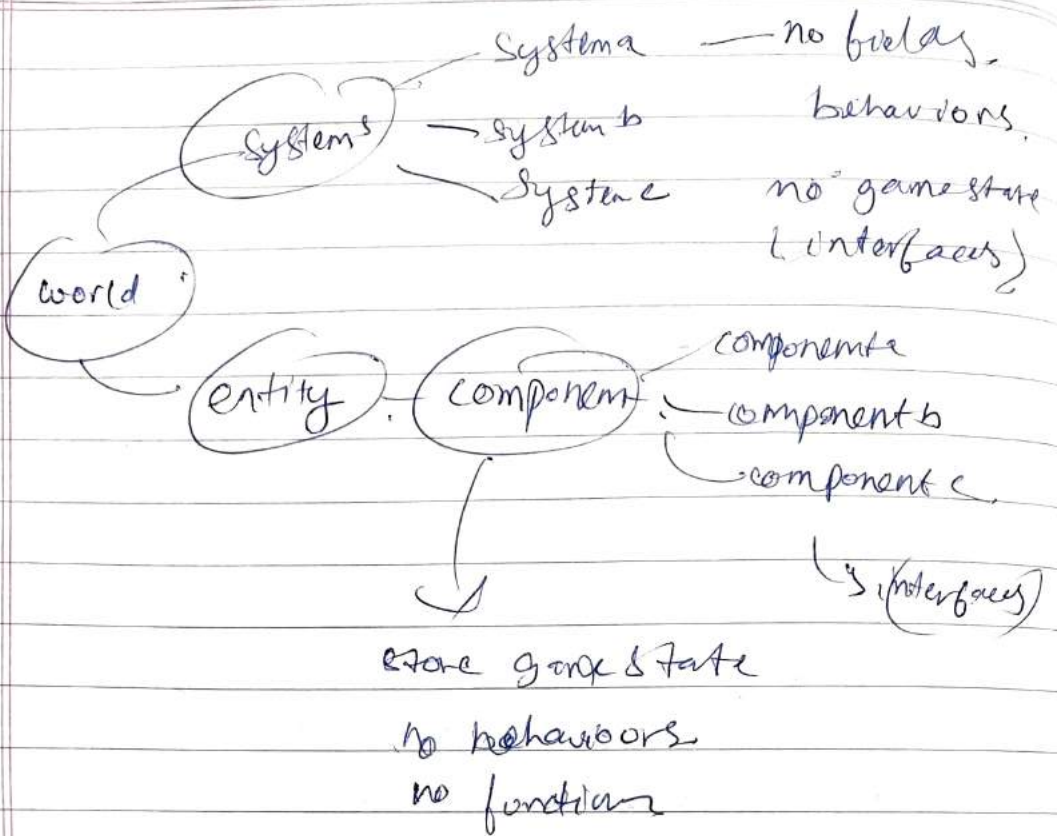 systema — no fields.
systems
system b
behaviors.
system c
no game state
(interfaces)
world
entity
component
componenta
component b
component c
interfaces
store game state
no behavioors
no function